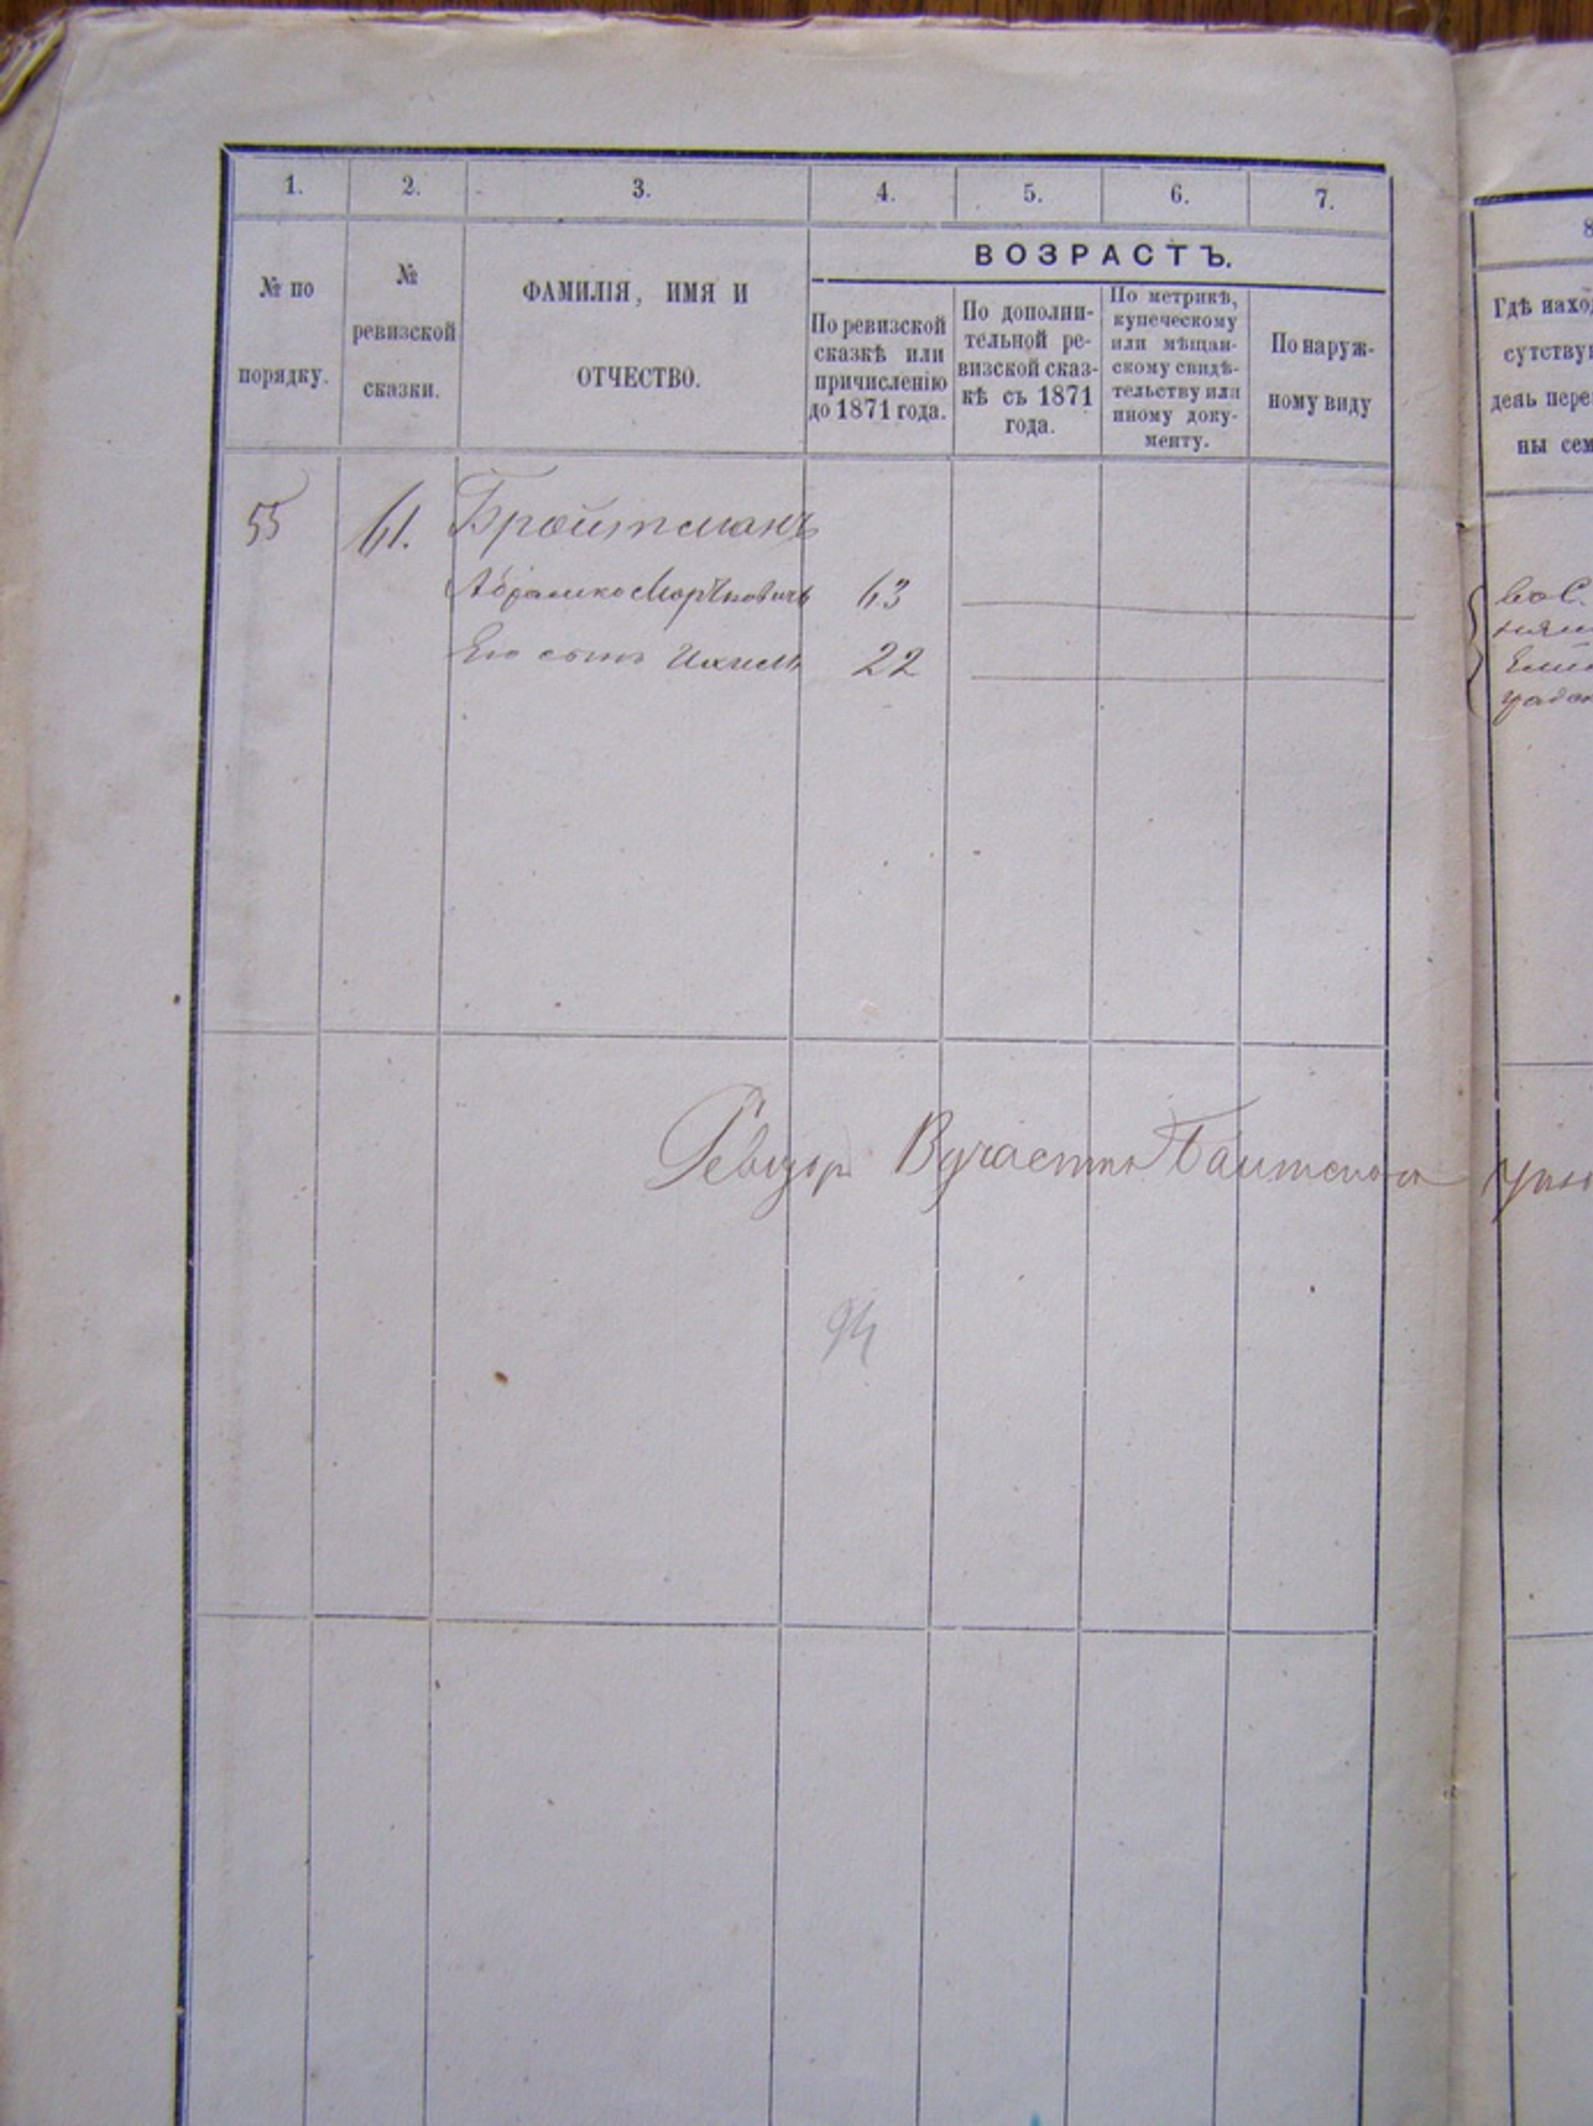 1. 2. 3. 4. 5. 6. 7. 8
№ по
порядку.
№
ревизской
сказки.
ФАМИЛІЯ, ИМЯ И
ОТЧЕСТВО.
ВОЗРАСТЪ.
По ревизской
сказкѣ или
причисленію
до 1871 года.
По дополни-
тельной ре-
визской сказ-
кѣ съ 1871
года.
По метрикѣ,
купеческому
или мѣщан-
скому свидѣ-
тельству или
иному доку-
менту.
По наруж-
ному виду
Гдѣ нахо
сутству
день пере
ны сем
55 61. Бройтманъ
Абрамко 63
Его сынъ Ихиель 22
Ревизоръ участка Балтскаго
94